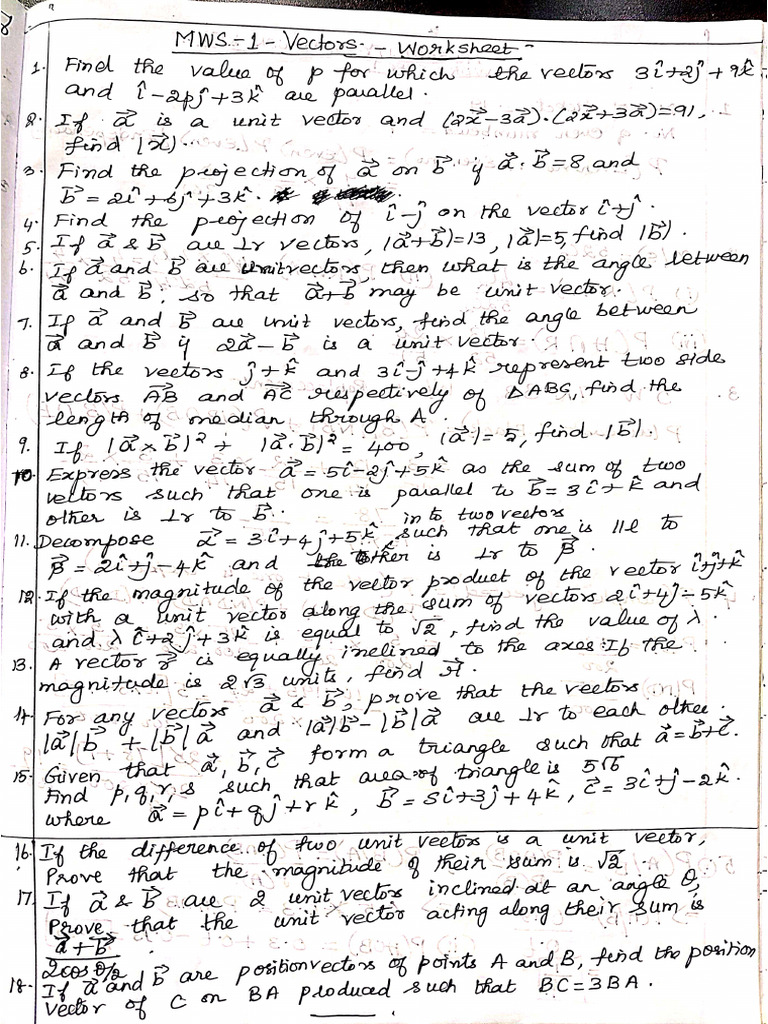 MWS-1- Vectors - Worksheet
1. Find the value of p for which the vectors 3î+2ĵ+9k̂
and î-2pĵ+3k̂ are parallel.
2. If a⃗ is a unit vector and (2x⃗-3a⃗)·(2x⃗+3a⃗)=91,
find |x⃗|.
3. Find the projection of a⃗ on b⃗ if a⃗·b⃗=8 and
b⃗=2î+6ĵ+3k̂.
4. Find the projection of î-ĵ on the vector î+ĵ.
5. If a⃗ & b⃗ are ⊥r vectors, |a⃗+b⃗|=13, |a⃗|=5, find |b⃗|.
6. If a⃗ and b⃗ are unit vectors, then what is the angle between
a⃗ and b⃗, so that a⃗+b⃗ may be unit vector.
7. If a⃗ and b⃗ are unit vectors, find the angle between
a⃗ and b⃗ if 2a⃗-b⃗ is a unit vector
8. If the vectors ĵ+k̂ and 3î-ĵ+4k̂ represent two side
vectors AB⃗ and AC⃗ respectively of ΔABC, find the
length of median through A.
9. If |a⃗×b⃗|² + |a⃗·b⃗|² = 400, |a⃗|=5, find |b⃗|.
10. Express the vector a⃗=5î-2ĵ+5k̂ as the sum of two
vectors such that one is parallel to b⃗=3î+k̂ and
other is ⊥r to b⃗.
in to two vectors
11. Decompose α⃗ = 3î+4ĵ+5k̂, such that one is ||l to
β⃗=2î+ĵ-4k̂ and the other is ⊥r to β⃗.
12. If the magnitude of the vector product of the vector î+ĵ+k̂
with a unit vector along the sum of vectors 2î+4ĵ-5k̂
and λî+2ĵ+3k̂ is equal to √2, find the value of λ.
13. A vector r⃗ is equally inclined to the axes. If the
magnitude is 2√3 units, find r⃗.
14. For any vectors a⃗ & b⃗, prove that the vectors
|a⃗|b⃗ + |b⃗|a⃗ and |a⃗|b⃗-|b⃗|a⃗ are ⊥r to each other.
15. Given that a⃗, b⃗, c⃗ form a triangle such that a⃗=b⃗+c⃗.
Find p,q,r,s such that area of triangle is 5√6
where a⃗=pî+qĵ+rk̂, b⃗=sî+3ĵ+4k̂, c⃗=3î+ĵ-2k̂.
16. If the difference of two unit vectors is a unit vector,
Prove that the magnitude of their sum is √2
17. If a⃗ & b⃗ are 2 unit vectors inclined at an angle θ,
Prove that the unit vector acting along their sum is
a⃗+b⃗
2cosθ/2
18. If a⃗ and b⃗ are position vectors of points A and B, find the position
vector of C on BA produced such that BC=3BA.